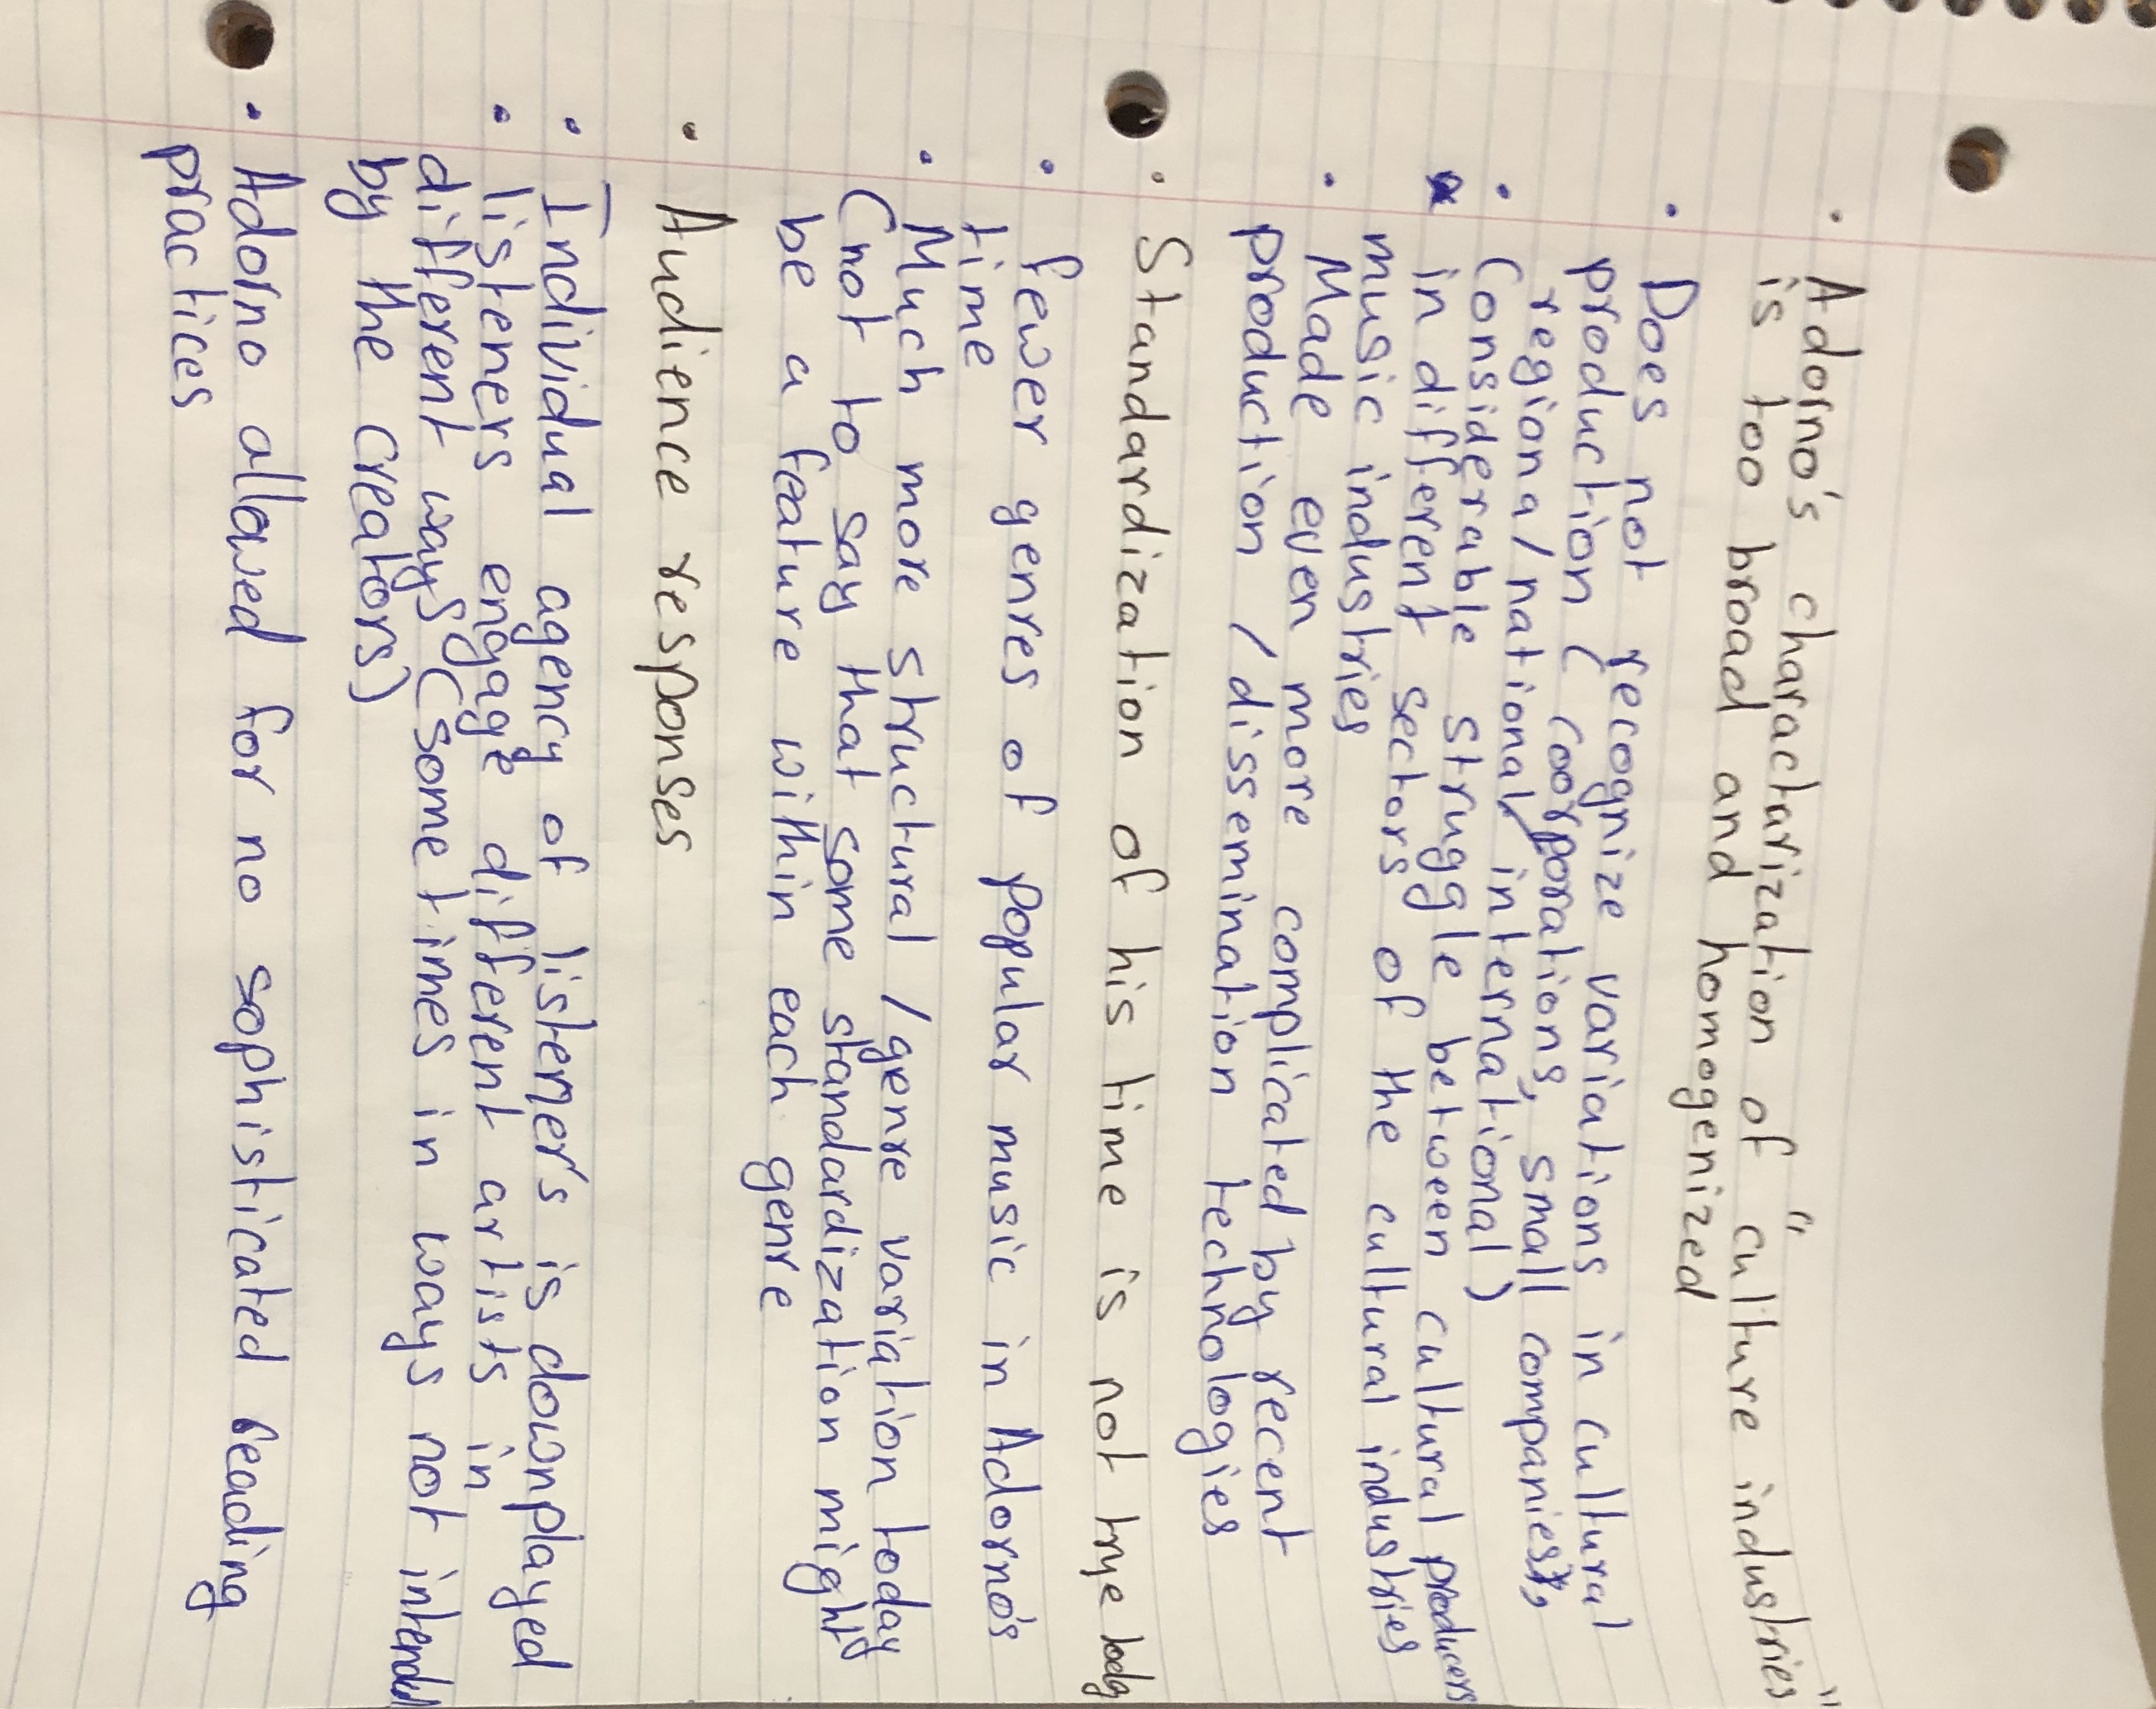 • Adorno's charactarization of "culture industries"
is too broad and homogenized
• Does not recognize variations in cultural
production (coorporations, small companies,
regional/national/international)
• Considerable struggle between cultural producers
in different sectors of the cultural industries
music industries
• Made even more complicated by recent
production/dissemination technologies
• Standardization of his time is not true today
• fewer genres of popular music in Adorno's
time
• Much more structural/genre variation today
(not to say that some standardization might
be a feature within each genre
• Audience responses
• Individual agency of listener's is downplayed
• listeners engage different artists in
different ways (sometimes in ways not intended
by the creators)
• Adorno allowed for no sophisticated reading
practices